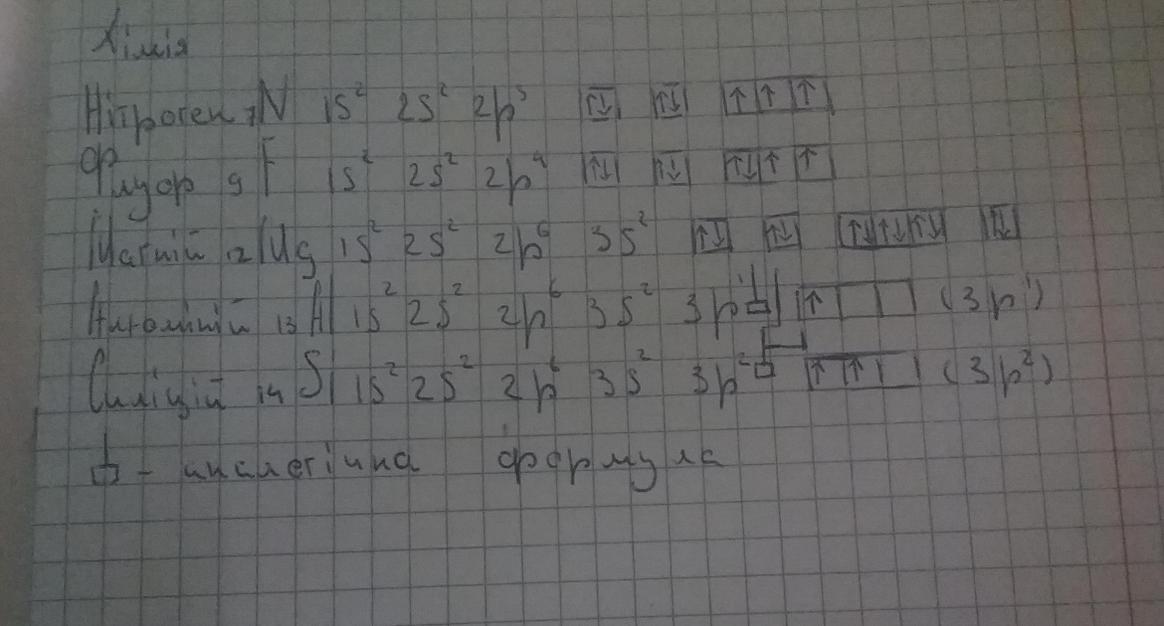 Хімія
Нітроген 7N 1s² 2s² 2p³ ↑↓ ↑↓ ↑ ↑ ↑
Флуор 9F 1s² 2s² 2p⁴ ↑↓ ↑↓ ↑↓ ↑ ↑
Магній 12Mg 1s² 2s² 2p⁶ 3s² ↑↓ ↑↓ ↑↓↑↓↑↓ ↑↓
Алюміній 13Al 1s² 2s² 2p⁶ 3s² 3p¹ ↑ (3p¹)
Силіцій 14Si 1s² 2s² 2p⁶ 3s² 3p² ↑ ↑ (3p²)
- аналегічна формула